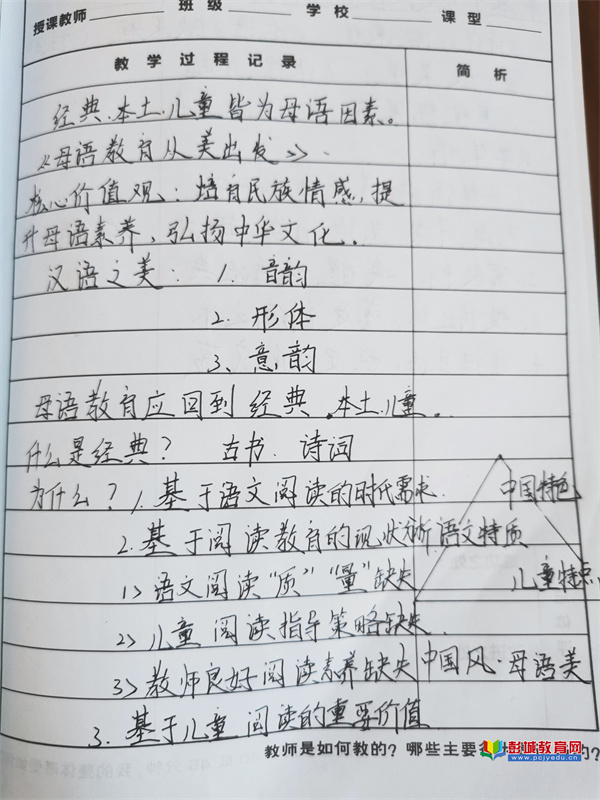 授课教师 班级 学校 课型
教学过程记录 简析
经典、本土、儿童皆为母语因素。
《母语教育从美出发》.
核心价值观：培育民族情感，提
升母语素养，弘扬中华文化。
汉语之美：1. 音韵
2. 形体
3、意韵
母语教育应回到经典、本土、儿童。
什么是经典？ 古书. 诗词
为什么？1. 基于语文阅读的时代需求. 中国特色
2. 基于阅读教育的现状分析 语文特质
1> 语文阅读“质”“量”缺失 儿童特点
2> 儿童阅读指导策略缺失.
3> 教师良好阅读素养缺失 中国风·母语美
3. 基于儿童阅读的重要价值
教师是如何教的？哪些主要
彭城教育网
www.pcjyedu.cn